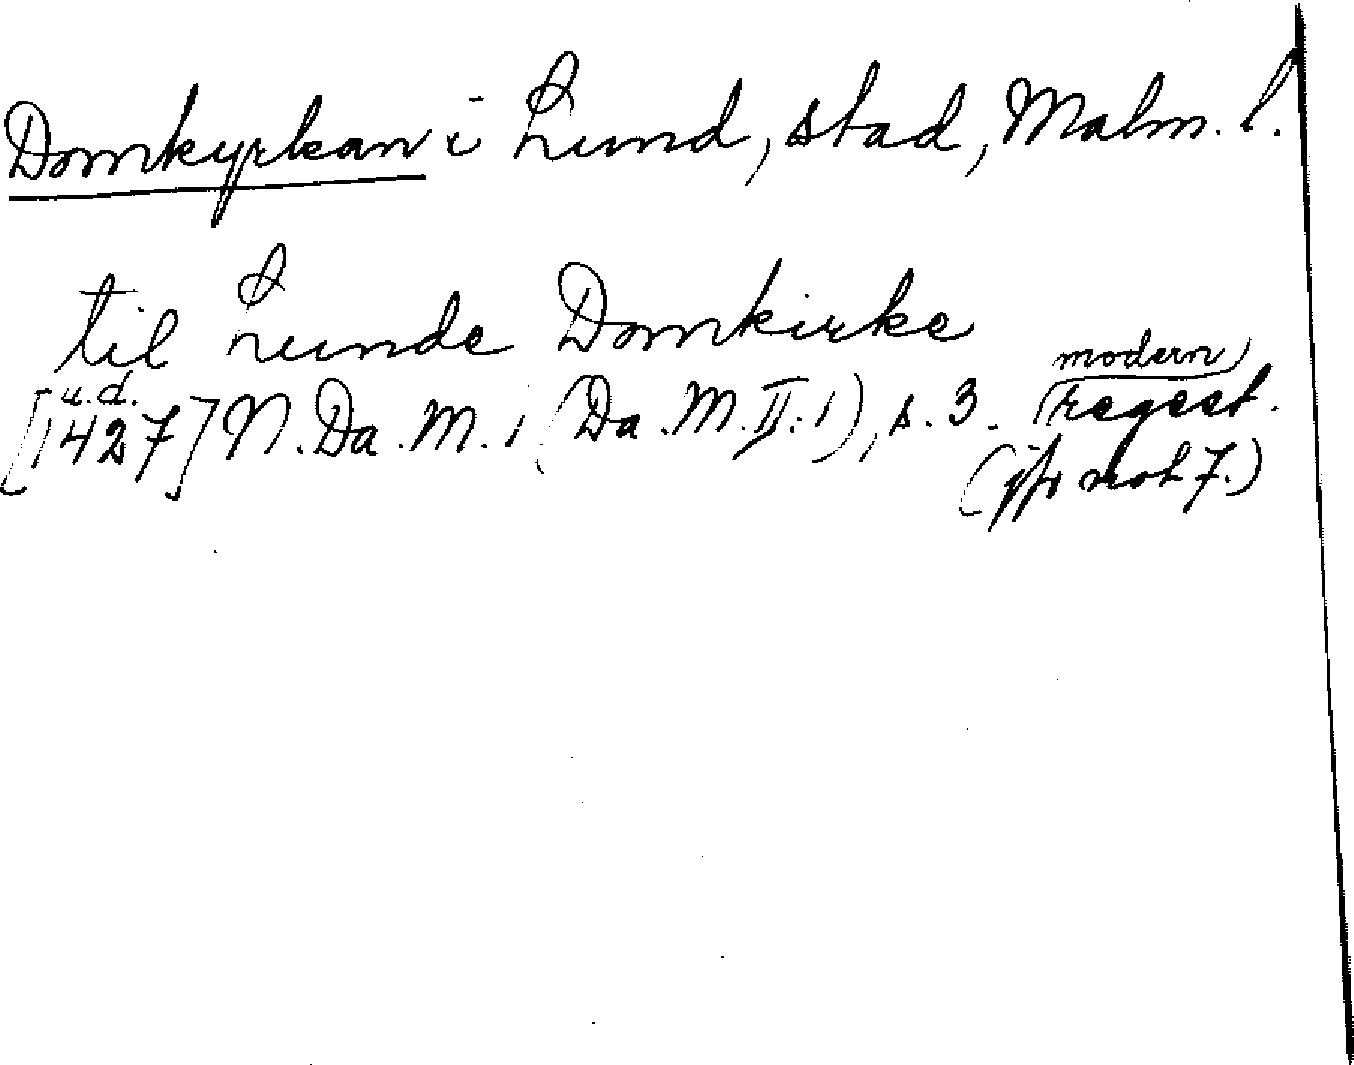 Domkyrkan i Lund, stad, Malm. l.
til Lunde Domkirke
u.d.
[1427] N. Da. M. 1 (Da. M. II: 1), s. 3. modern regest.
(jfr not 7.)